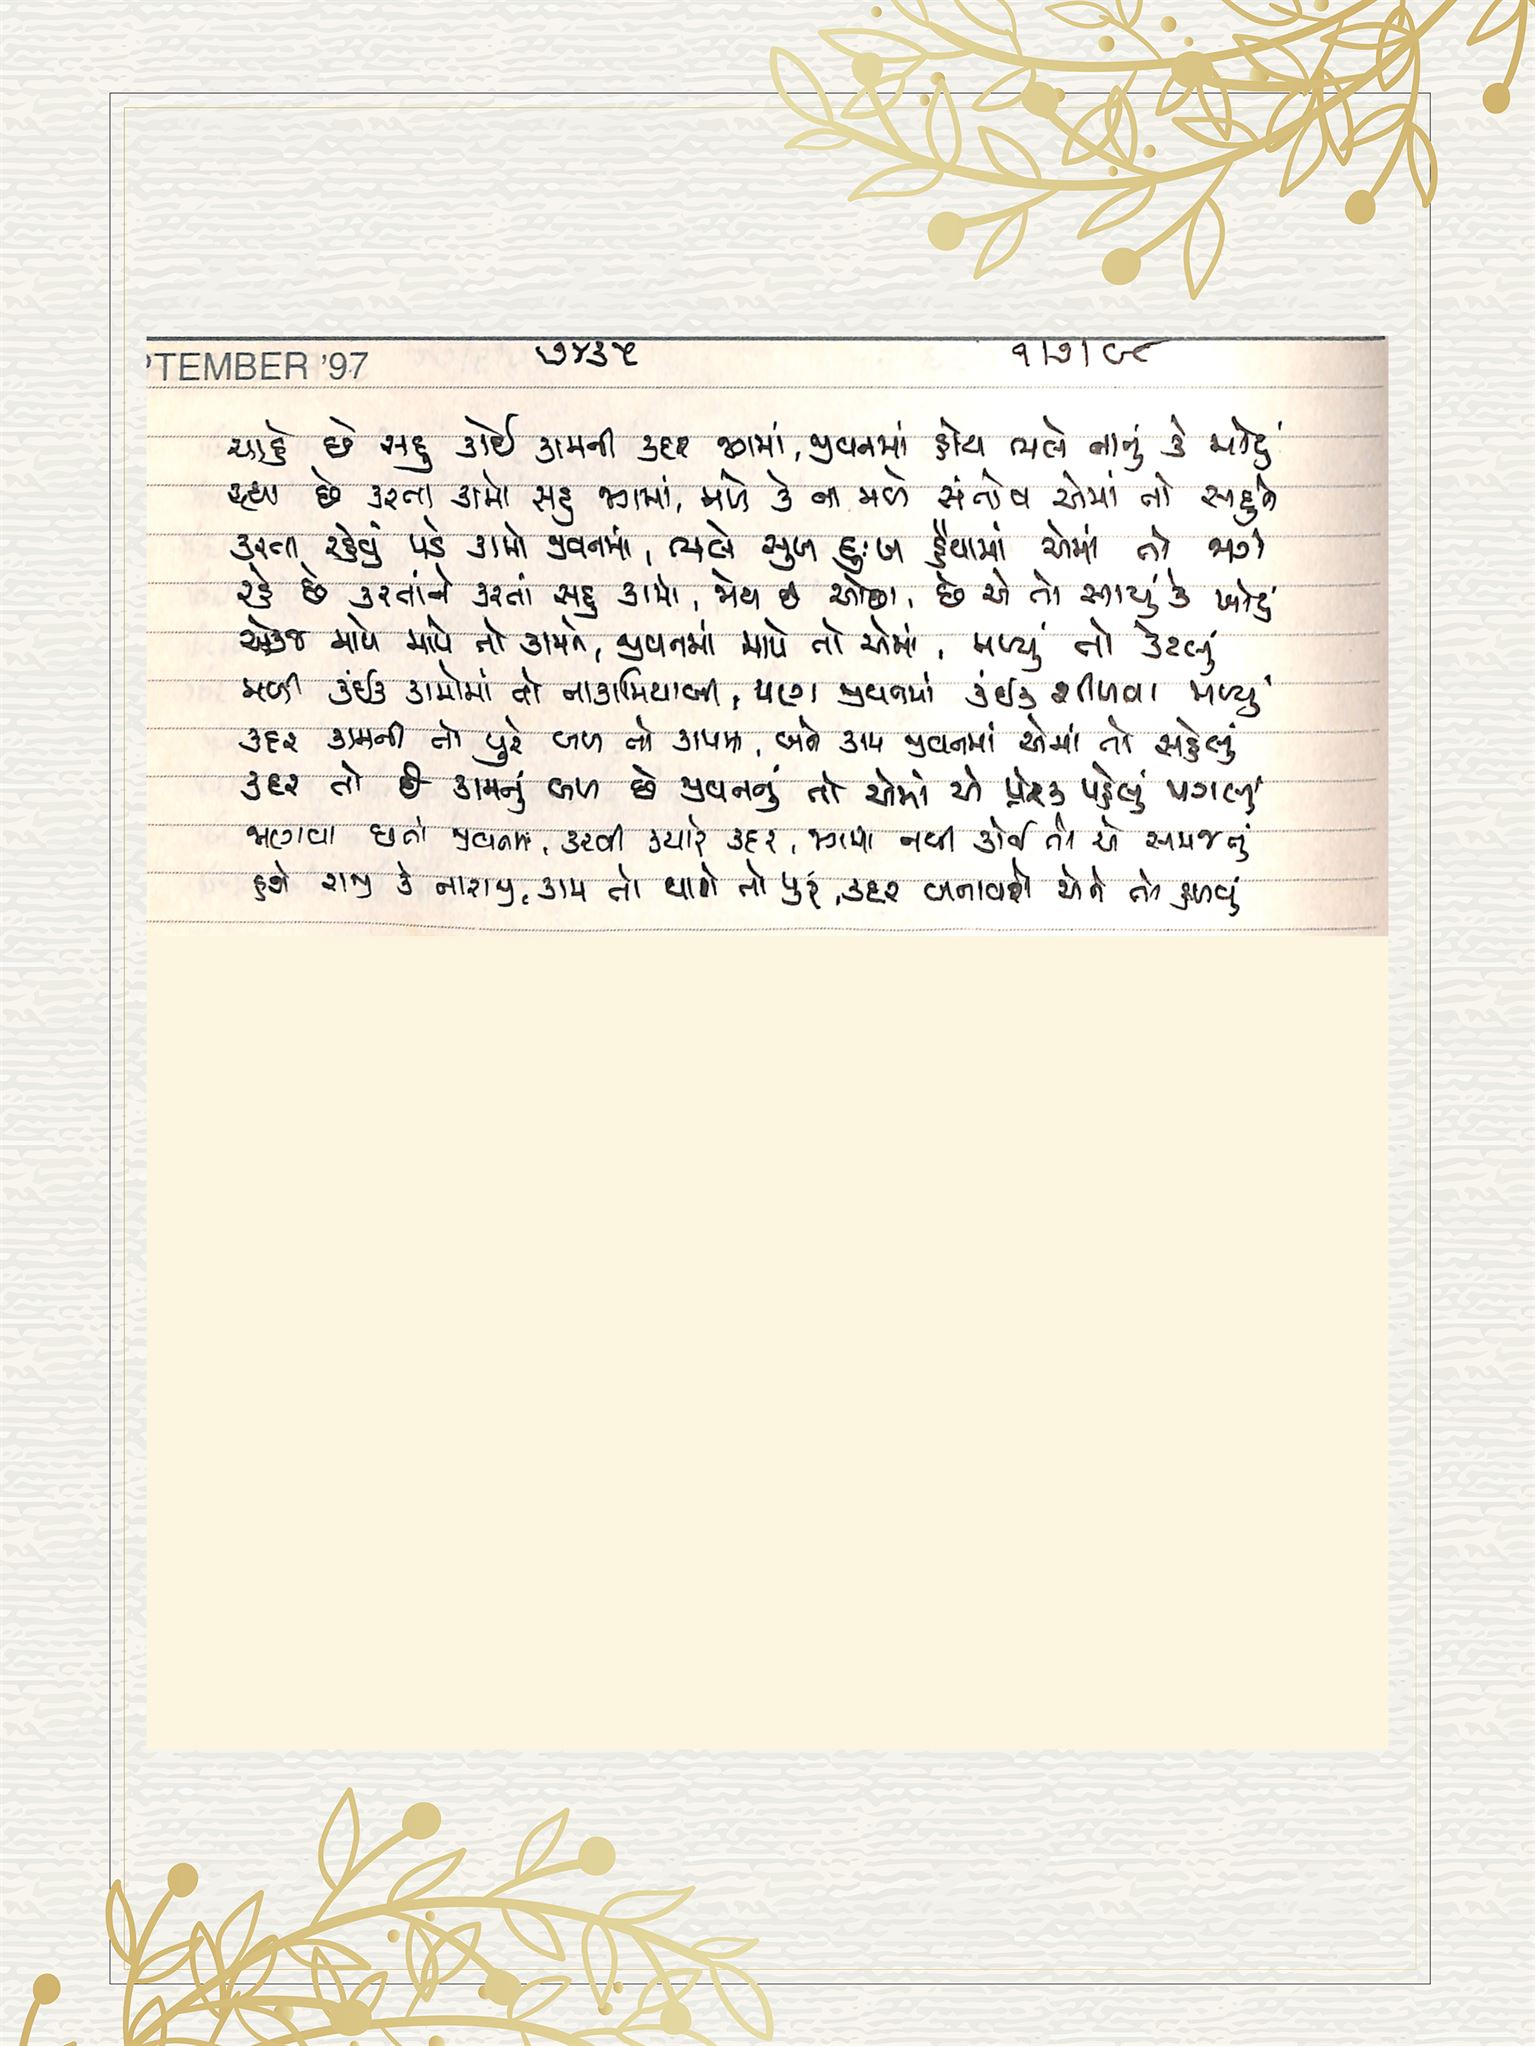 PTEMBER '97 ૭૪૩૫ ૧/૭/૯૮
ચાહે છે સહુ કોઈ કામની કદર જગમાં, જીવનમાં હોય ભલે નાનું કે મોટું
રહ્યા છે કરતા કામો સહુ જગમાં, મળે કે ના મળે સંતોષ એમાં તો સહુને
કરતા રહેવું પડે કામો જીવનમાં, ભલે સુખ દુઃખ હૈયામાં એમાં તો જાગે
રહે છે કરતાંને કરતાં સહુ કામો, એ તો સાચું કે ખોટું
એકજ માપે માપે તો કામને, જીવનમાં માપે તો એમાં, મળ્યું તો કેટલું
મળી કંઈક કામોમાં તો નાકામિયાબી, પણ જીવનમાં કંઈક શીખવા મળ્યું
કદર કામની તો પુરે બળ તો કામમાં, બને કામ જીવનમાં એમાં તો સહેલું
કદર તો છે કામનું બળ છે જીવનનું તો એમાં એ પ્રેરક પહેલું પગલું
જીવનમાં, કરવી ક્યારે કદર, જગમાં નથી કોઈ તો એ સમજતું
હશે રાજી કે નારાજી, કામ તો થાશે તો પુરું, કદર બનાવશે એને તો હળવું